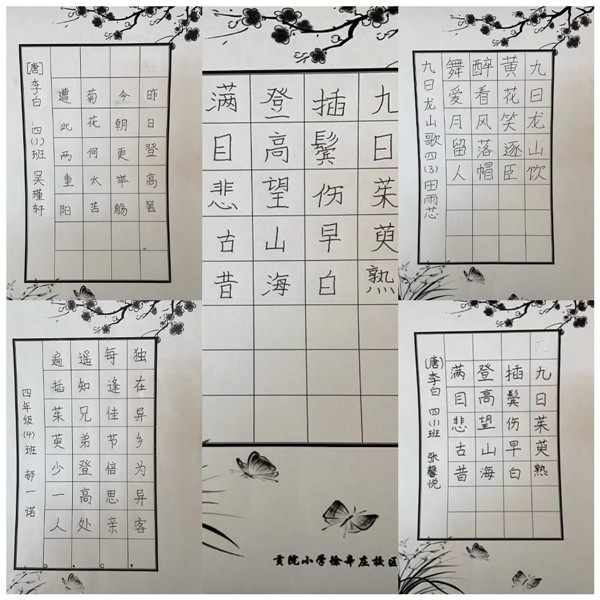 昨日登高罢
今朝更举觞
菊花何太苦
遭此两重阳
[唐]李白 四(1)班 吴瑾轩
九日茱萸熟
插鬓伤早白
登高望山海
满目悲古昔
贡院小学徐辛庄校区
九日龙山饮
黄花笑逐臣
醉看风落帽
舞爱月留人
九日龙山歌 四(3)田雨芯
独在异乡为异客
每逢佳节倍思亲
遥知兄弟登高处
遍插茱萸少一人
四年级(4)班 郝一诺
九日茱萸熟
插鬓伤早白
登高望山海
满目悲古昔
(唐)李白 四(1)班 张馨悦